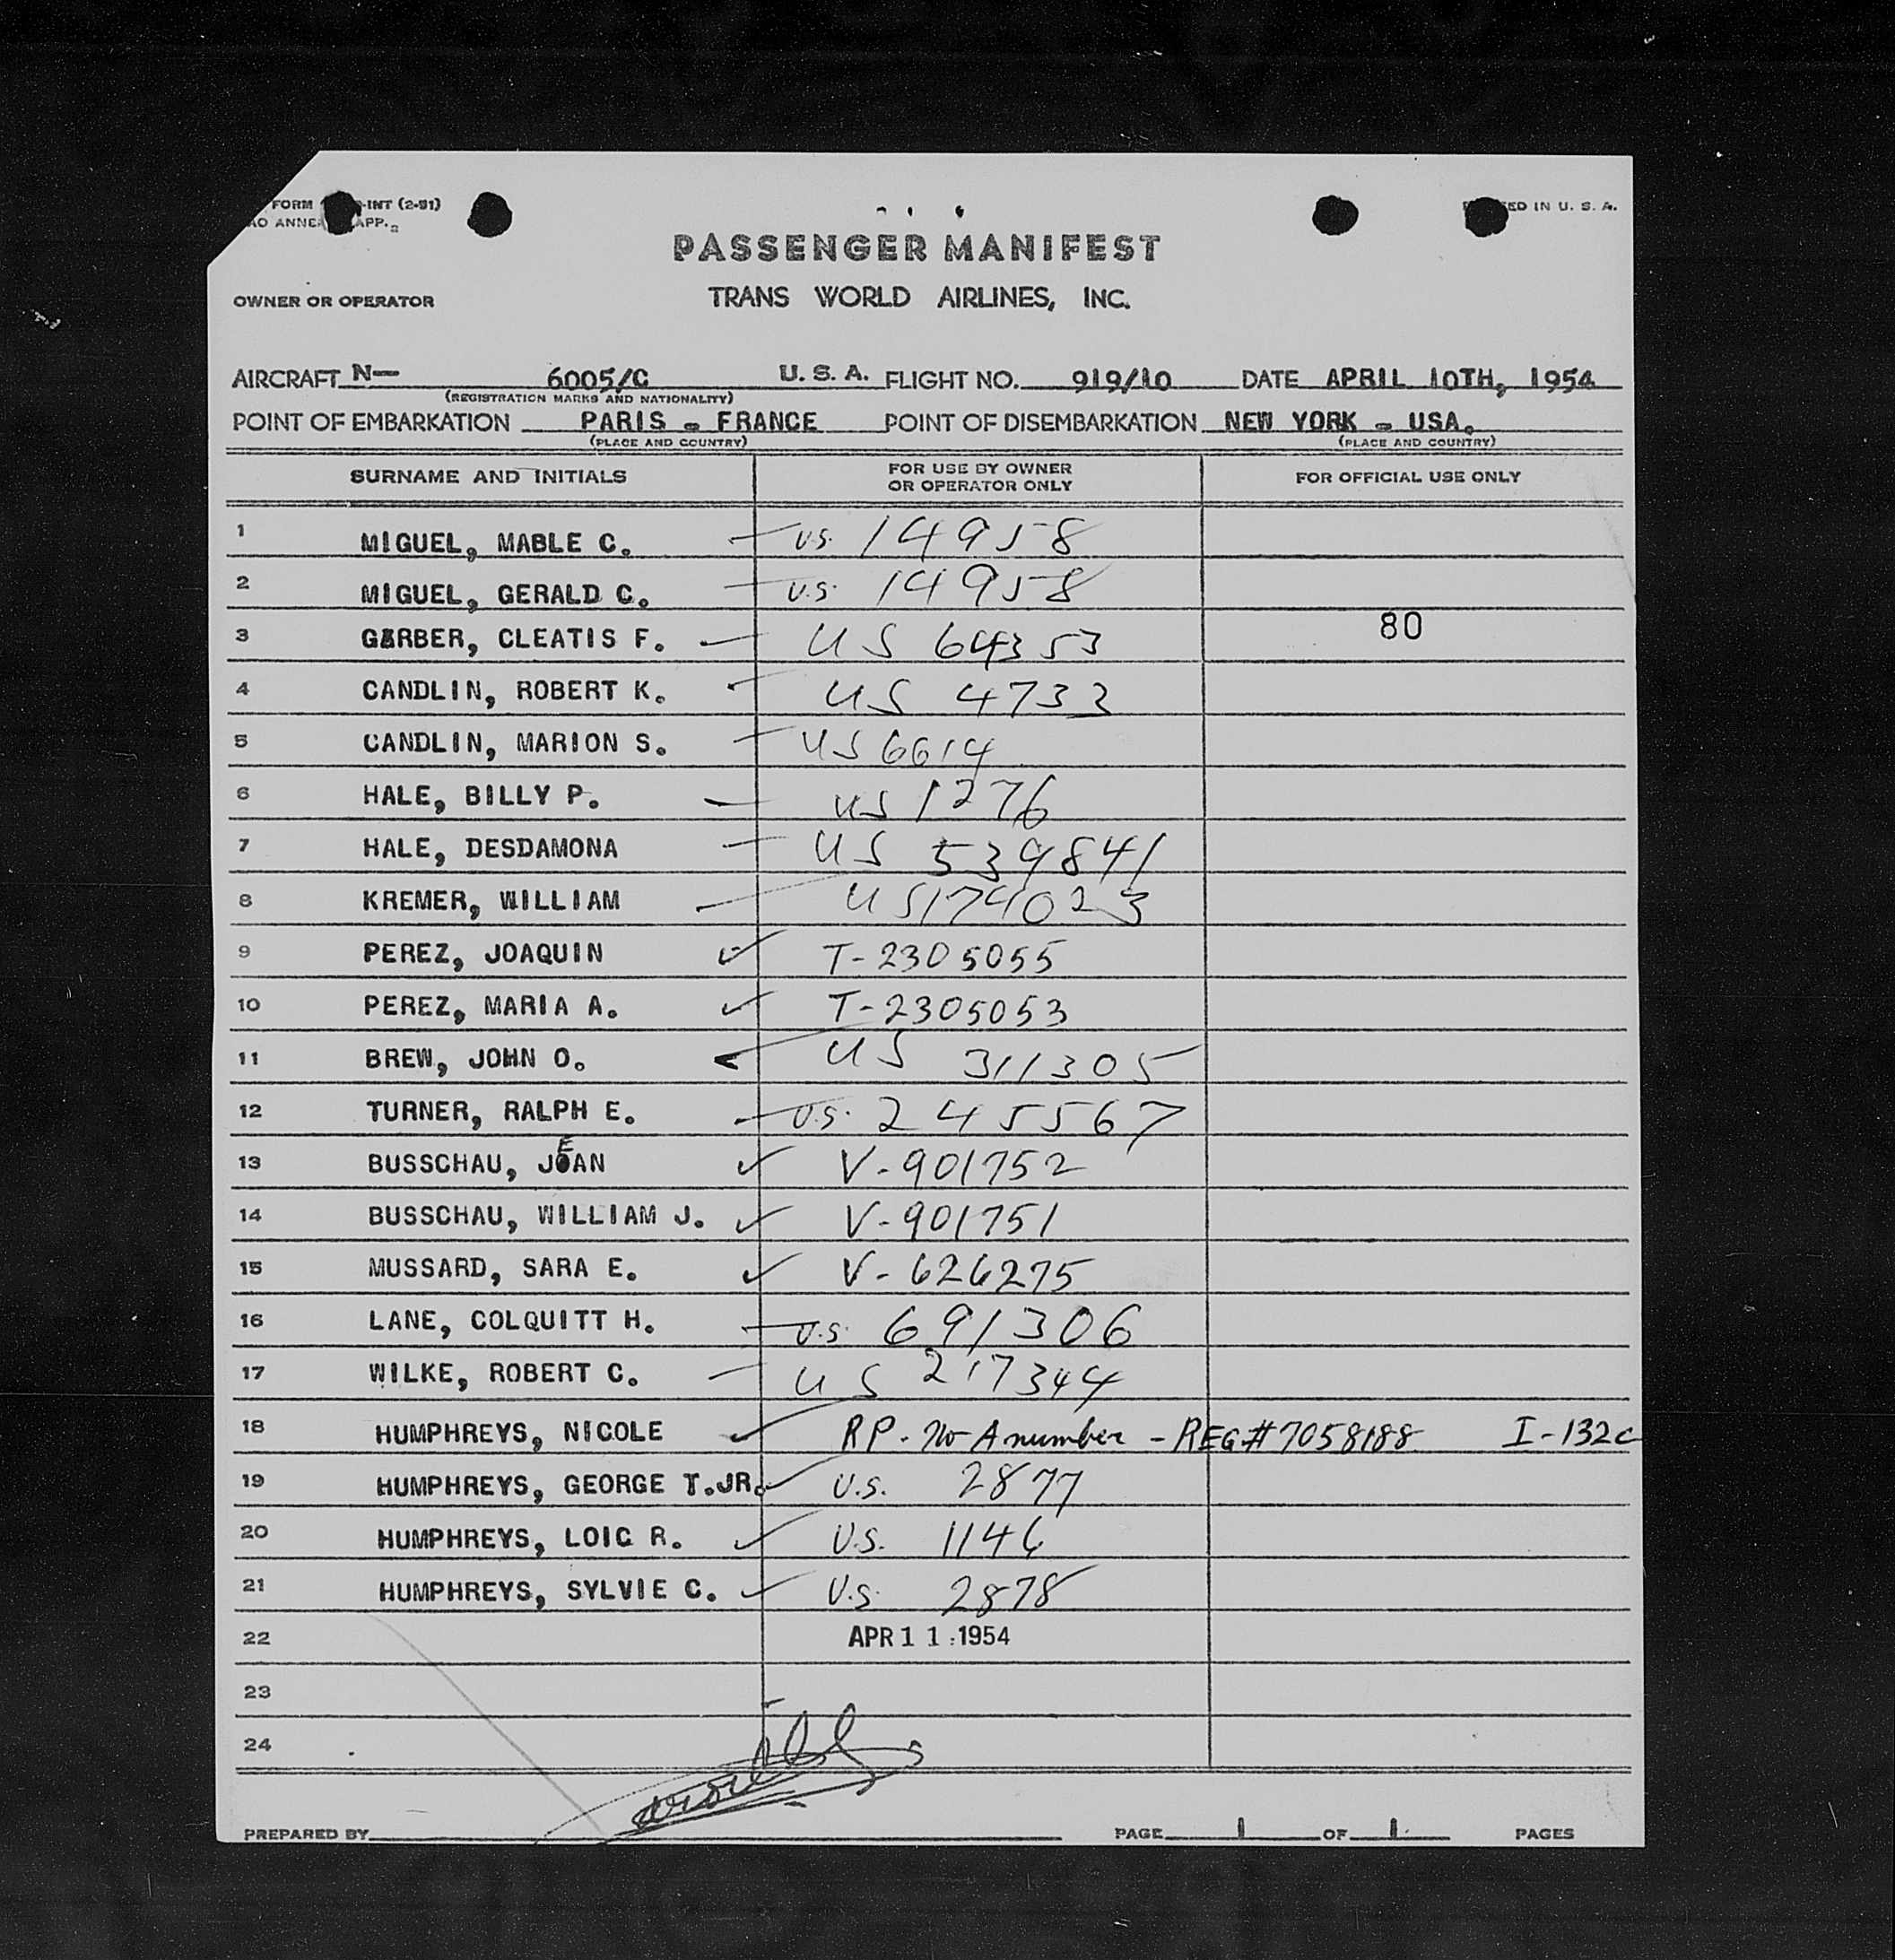 FORM -INT (2-51)
AO ANNEX APP. 2
ED IN U. S. A.
PASSENGER MANIFEST
OWNER OR OPERATOR TRANS WORLD AIRLINES, INC.
AIRCRAFT N— 6005/C U. S. A. FLIGHT NO. 919/10 DATE APRIL 10TH, 1954
(REGISTRATION MARKS AND NATIONALITY)
POINT OF EMBARKATION PARIS - FRANCE POINT OF DISEMBARKATION NEW YORK - USA.
(PLACE AND COUNTRY) (PLACE AND COUNTRY)
SURNAME AND INITIALS FOR USE BY OWNER OR OPERATOR ONLY FOR OFFICIAL USE ONLY
1 MIGUEL, MABLE C. U.S. 14958
2 MIGUEL, GERALD C. U.S. 14958
3 GERBER, CLEATIS F. US 64353 80
4 CANDLIN, ROBERT K. US 4733
5 CANDLIN, MARION S. US 6614
6 HALE, BILLY P. US 1276
7 HALE, DESDAMONA US 539841
8 KREMER, WILLIAM US 174023
9 PEREZ, JOAQUIN T-2305055
10 PEREZ, MARIA A. T-2305053
11 BREW, JOHN O. US 311305
12 TURNER, RALPH E. U.S. 245567
13 BUSSCHAU, JEAN V-901752
14 BUSSCHAU, WILLIAM J. V-901751
15 MUSSARD, SARA E. V-626275
16 LANE, COLQUITT H. U.S. 691306
17 WILKE, ROBERT C. US 217344
18 HUMPHREYS, NICOLE RP. No A number - REG# 7058188 I-132c
19 HUMPHREYS, GEORGE T.JR. U.S. 2877
20 HUMPHREYS, LOIC R. U.S. 1146
21 HUMPHREYS, SYLVIE C. U.S. 2878
22 APR 11 1954
23
24
PREPARED BY PAGE 1 OF 1 PAGES